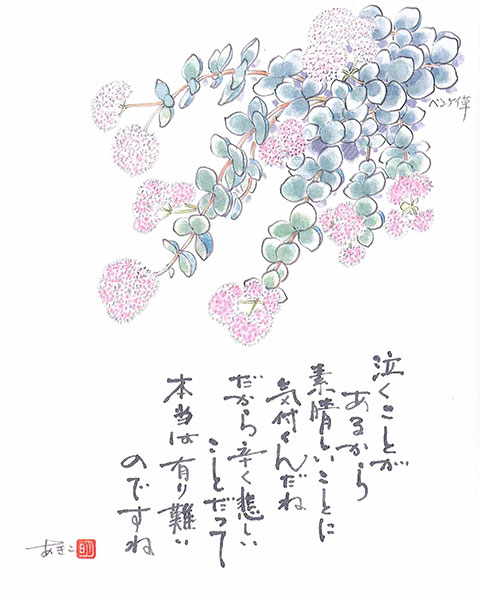 ベンケイ草
泣くことが
あるから
素晴しいことに
気付くんだね
だから辛く悲しい
ことだって
本当は有り難い
のですね
あきこ